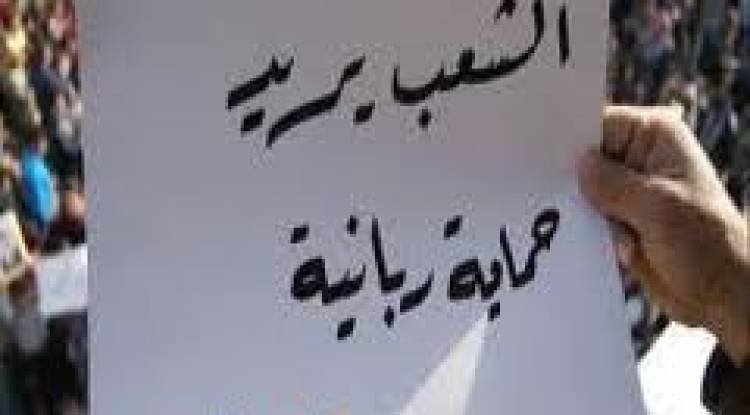 الشعب يريد
حماية ربانية